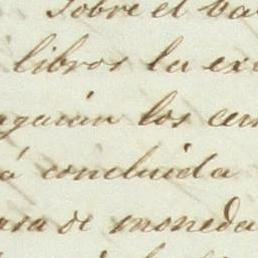 Sobre el ba
libros la exi
los cen
á concluida
asa de moneda